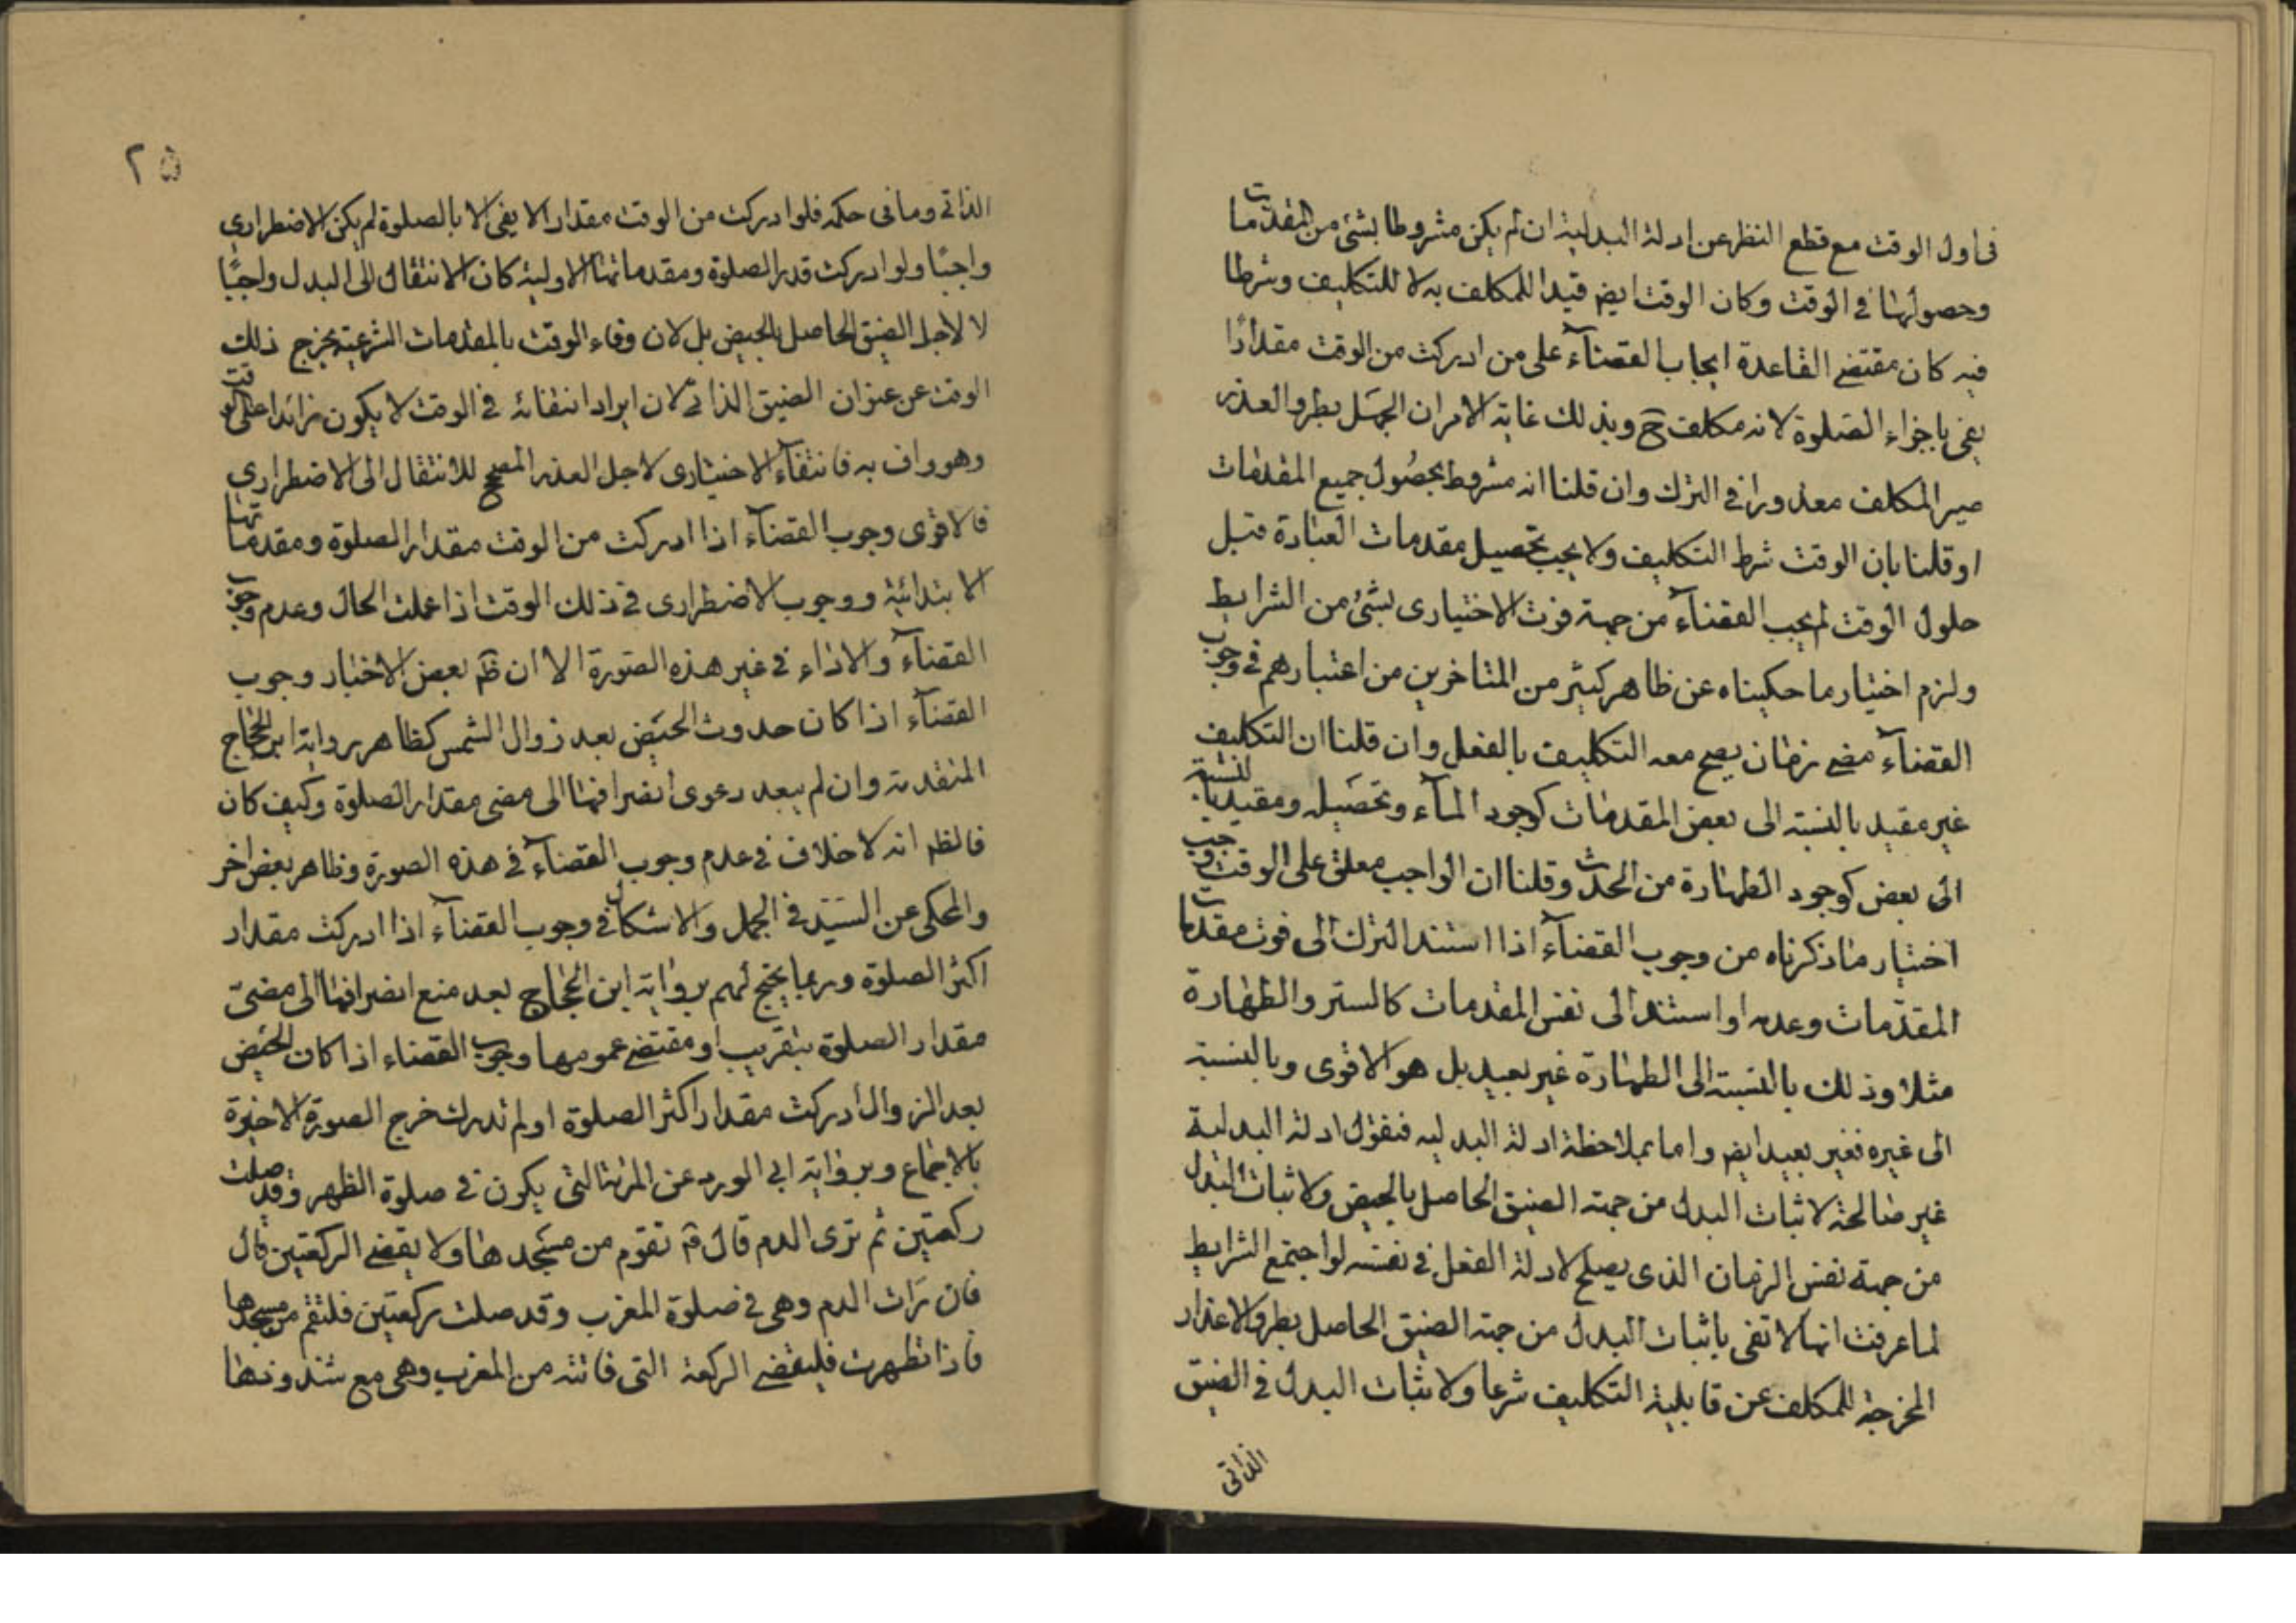 فى اول الوقت مع قطع النظر عن ادلة البدلية ان لم يكن مشروطا بشئ من المقدمات
وحصولها فى الوقت وكان الوقت ايضم قيدا للمكلف به لا للتكليف وشرطا
فيه كان مقتضى القاعدة ايجاب القضآء على من ادركت من الوقت مقدارًا
يفى باجزاء الصلوة لانه مكلف ح وبذلك غاية الامر ان الجهل بطرو العذر
صير المكلف معذورا فى الترك وان قلنا انه مشروط بحصول جميع المقدمات
او قلنا بان الوقت شرط التكليف ولا يجب تحصيل مقدمات العبادة قبل
حلول الوقت لم يجب القضآء من جهة فوت الاختيارى بشئ من الشرايط
ولزم اختيار ما حكيناه عن ظاهر كثير من المتاخرين من اعتبارهم فى وجوب
القضآء مضى زمان يصح معه التكليف بالفعل وان قلنا ان التكليف
غير مقيد بالنسبة الى بعض المقدمات كوجود المآء وتحصيله ومقيد بالنسبة
الى بعض كوجود الطهارة من الحدث وقلنا ان الواجب معلق على الوقت وجب
اختيار ما ذكرناه من وجوب القضآء اذا استند الترك الى فوت مقدمات
المقدمات وعدمه او استند الى نفس المقدمات كالستر والطهارة
مثلا وذلك بالنسبة الى الطهارة غير بعيد بل هو الاقوى وبالنسبة
الى غيره فغير بعيد ايضم واما بملاحظة ادلة البدليه فنقول ادلة البدلية
غير صالحة لاثبات البدل من جهة الضيق الحاصل بالحيض ولاثبات البدل
من جهة نفس الزمان الذى يصلح لادلة الفعل فى نفسه لو اجتمع الشرايط
لما عرفت انها لا تفى باثبات البدل من جهة الضيق الحاصل بطرو الاعذار
المخرجة للمكلف عن قابلية التكليف شرعا ولاثبات البدل فى الضيق
الذاتى
٢٥
الذاتى وما فى حكمه فلو ادركت من الوقت مقدارا لا يفى الا بالصلوة لم يكن الاضطرارى
واجبًا ولو ادركت قدر الصلوة ومقدماتها الاولية كان الانتقال الى البدل واجبًا
لا لاجل الضيق الحاصل بالحيض بل لان وفاء الوقت بالمقدمات الشرعية يخرج ذلك
الوقت عن عنوان الضيق الذاتى لان ايراد انتفائه فى الوقت لا يكون زائدا على الوقت
وهو واف به فانتفآء الاختيارى لاجل العذر المصحح للانتقال الى الاضطرارى
فالاقوى وجوب القضآء اذا ادركت من الوقت مقدار الصلوة ومقدماتها
الابتدائية ووجوب الاضطرارى فى ذلك الوقت اذا علمت الحال وعدم وجوب
القضآء والاداء فى غير هذه الصورة الا ان ظم بعض الاخبار وجوب
القضآء اذا كان حدوث الحيض بعد زوال الشمس كظاهر رواية ابن الحجاج
المتقدمة وان لم يبعد دعوى انصرافها الى مضى مقدار الصلوة وكيف كان
فالظم انه لا خلاف فى عدم وجوب القضآء فى هذه الصورة وظاهر بعض اخر
والمحكى عن السيد فى الجمل والاشكال فى وجوب القضآء اذا ادركت مقدار
اكثر الصلوة وربما يحتج لهم برواية ابن الحجاج بعد منع انصرافها الى مضى
مقدار الصلوة بتقريب او مقتضى عمومها وجوب القضاء اذا كان الحيض
بعد الزوال ادركت مقدار اكثر الصلوة او لم تدرك خرج الصورة الاخيرة
بالاجماع وبرواية ابى الورد عن المرئة التى يكون فى صلوة الظهر وقد صلت
ركعتين ثم ترى الدم قال تقوم من مسجدها ولا يقضى الركعتين قال
فان رات الدم وهى فى صلوة المغرب وقد صلت ركعتين فلتقم من مسجدها
فاذا تطهرت فليقضى الركعة التى فاتته من المغرب وهى مع شذوذها